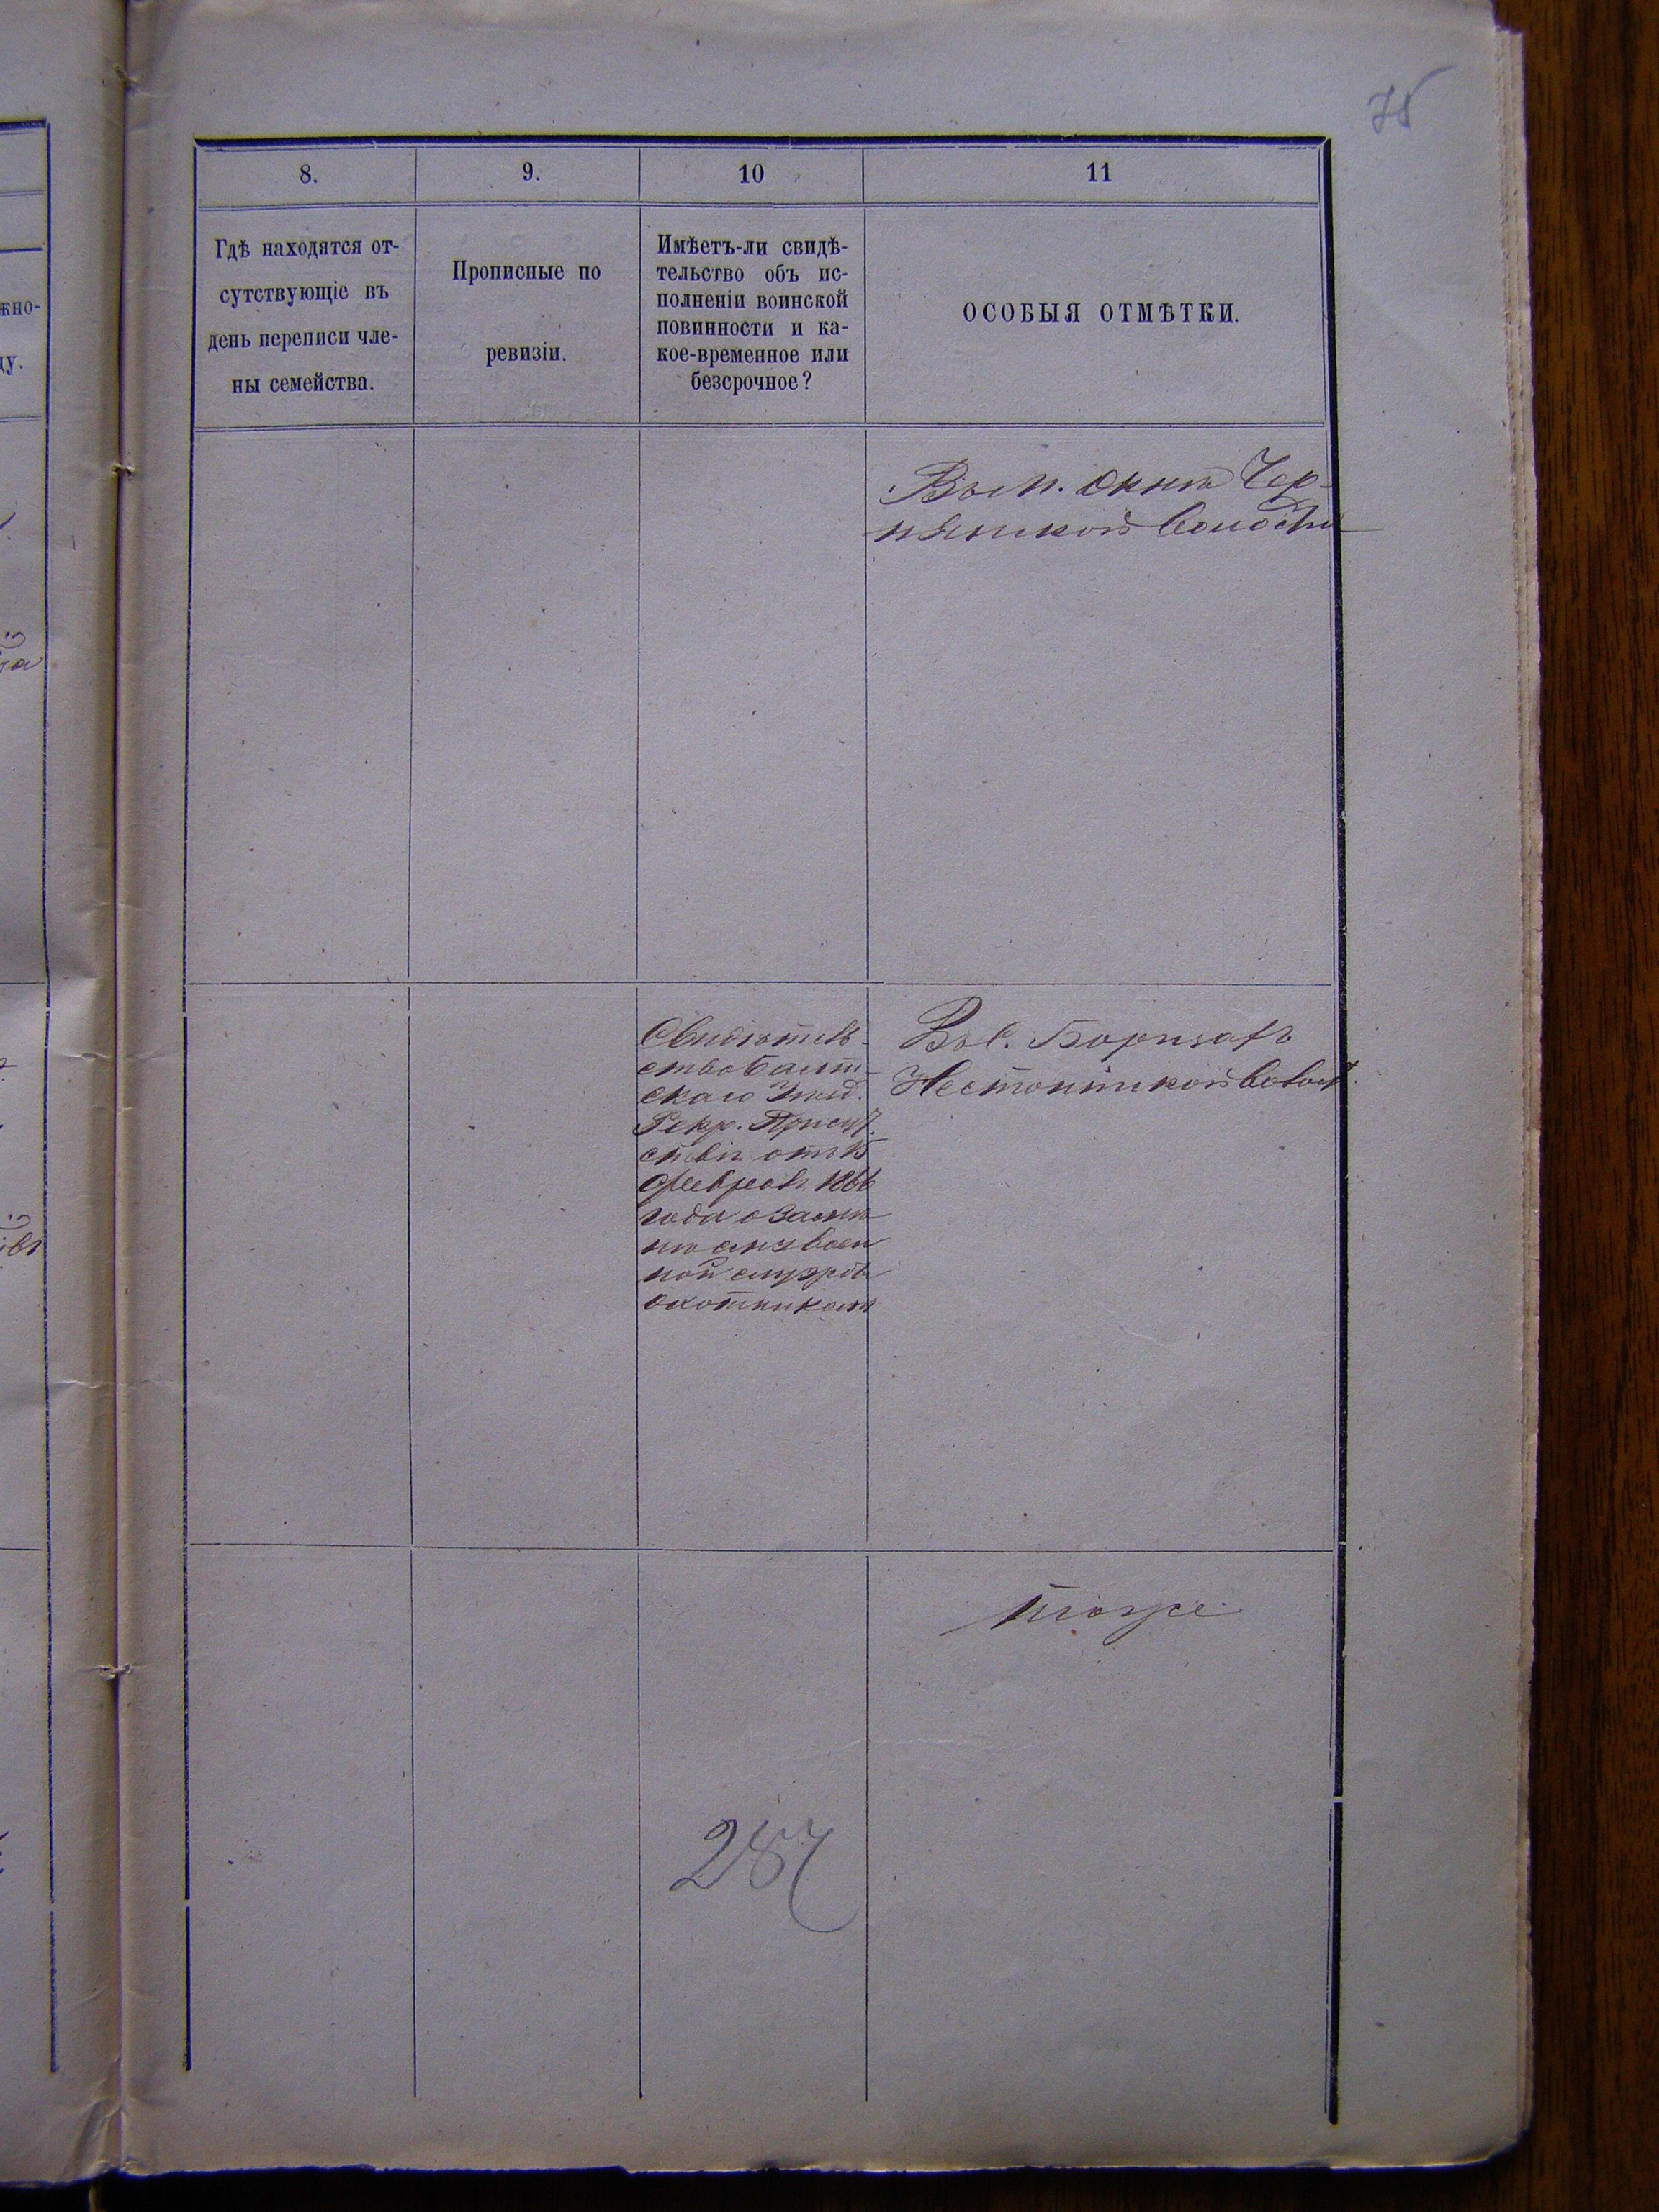 75
8.
9.
10
11
Гдѣ находятся от-
сутствующіе въ
день переписи чле-
ны семейства.
Прописные по
ревизіи.
Имѣетъ-ли свидѣ-
тельство объ ис-
полненіи воинской
повинности и ка-
кое-временное или
безсрочное?
ОСОБЫЯ ОТМѢТКИ.
жно-
ду.
Въ м. Окнѣ Чер-
нянской волости
Свидѣтель-
ство Балт-
скаго Уѣзд.
Рекр. Присут.
ствія отъ 15
Февраля 1866
года о замѣ
нѣ его въ воен
ной службѣ
охотникомъ
Въ с. Борисахъ
Нестоитской Волост.
тоже
287